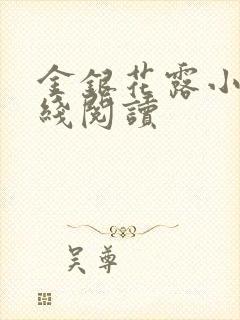 金銀花露小
綫閱讀
吴尊